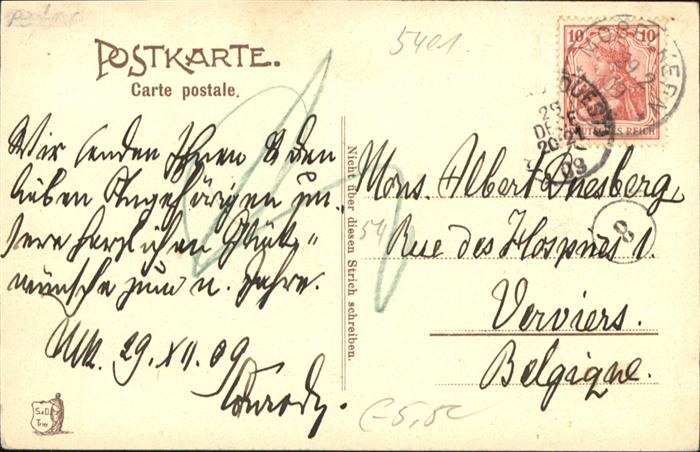 5401.
POSTKARTE.
Carte postale.
10 10
DEUTSCHES REICH
29
DEC
20-21
09
Wir senden Ihnen & den
lieben Angehörigen un-
sere herzlichen Glück-
wünsche zum n. Jahre.
29. XII. 09
Nicht über diesen Strich schreiben.
Mons. Albert
54
8
Rue des Hospices 1.
Verviers.
Belgique.
S.&D.
Trier